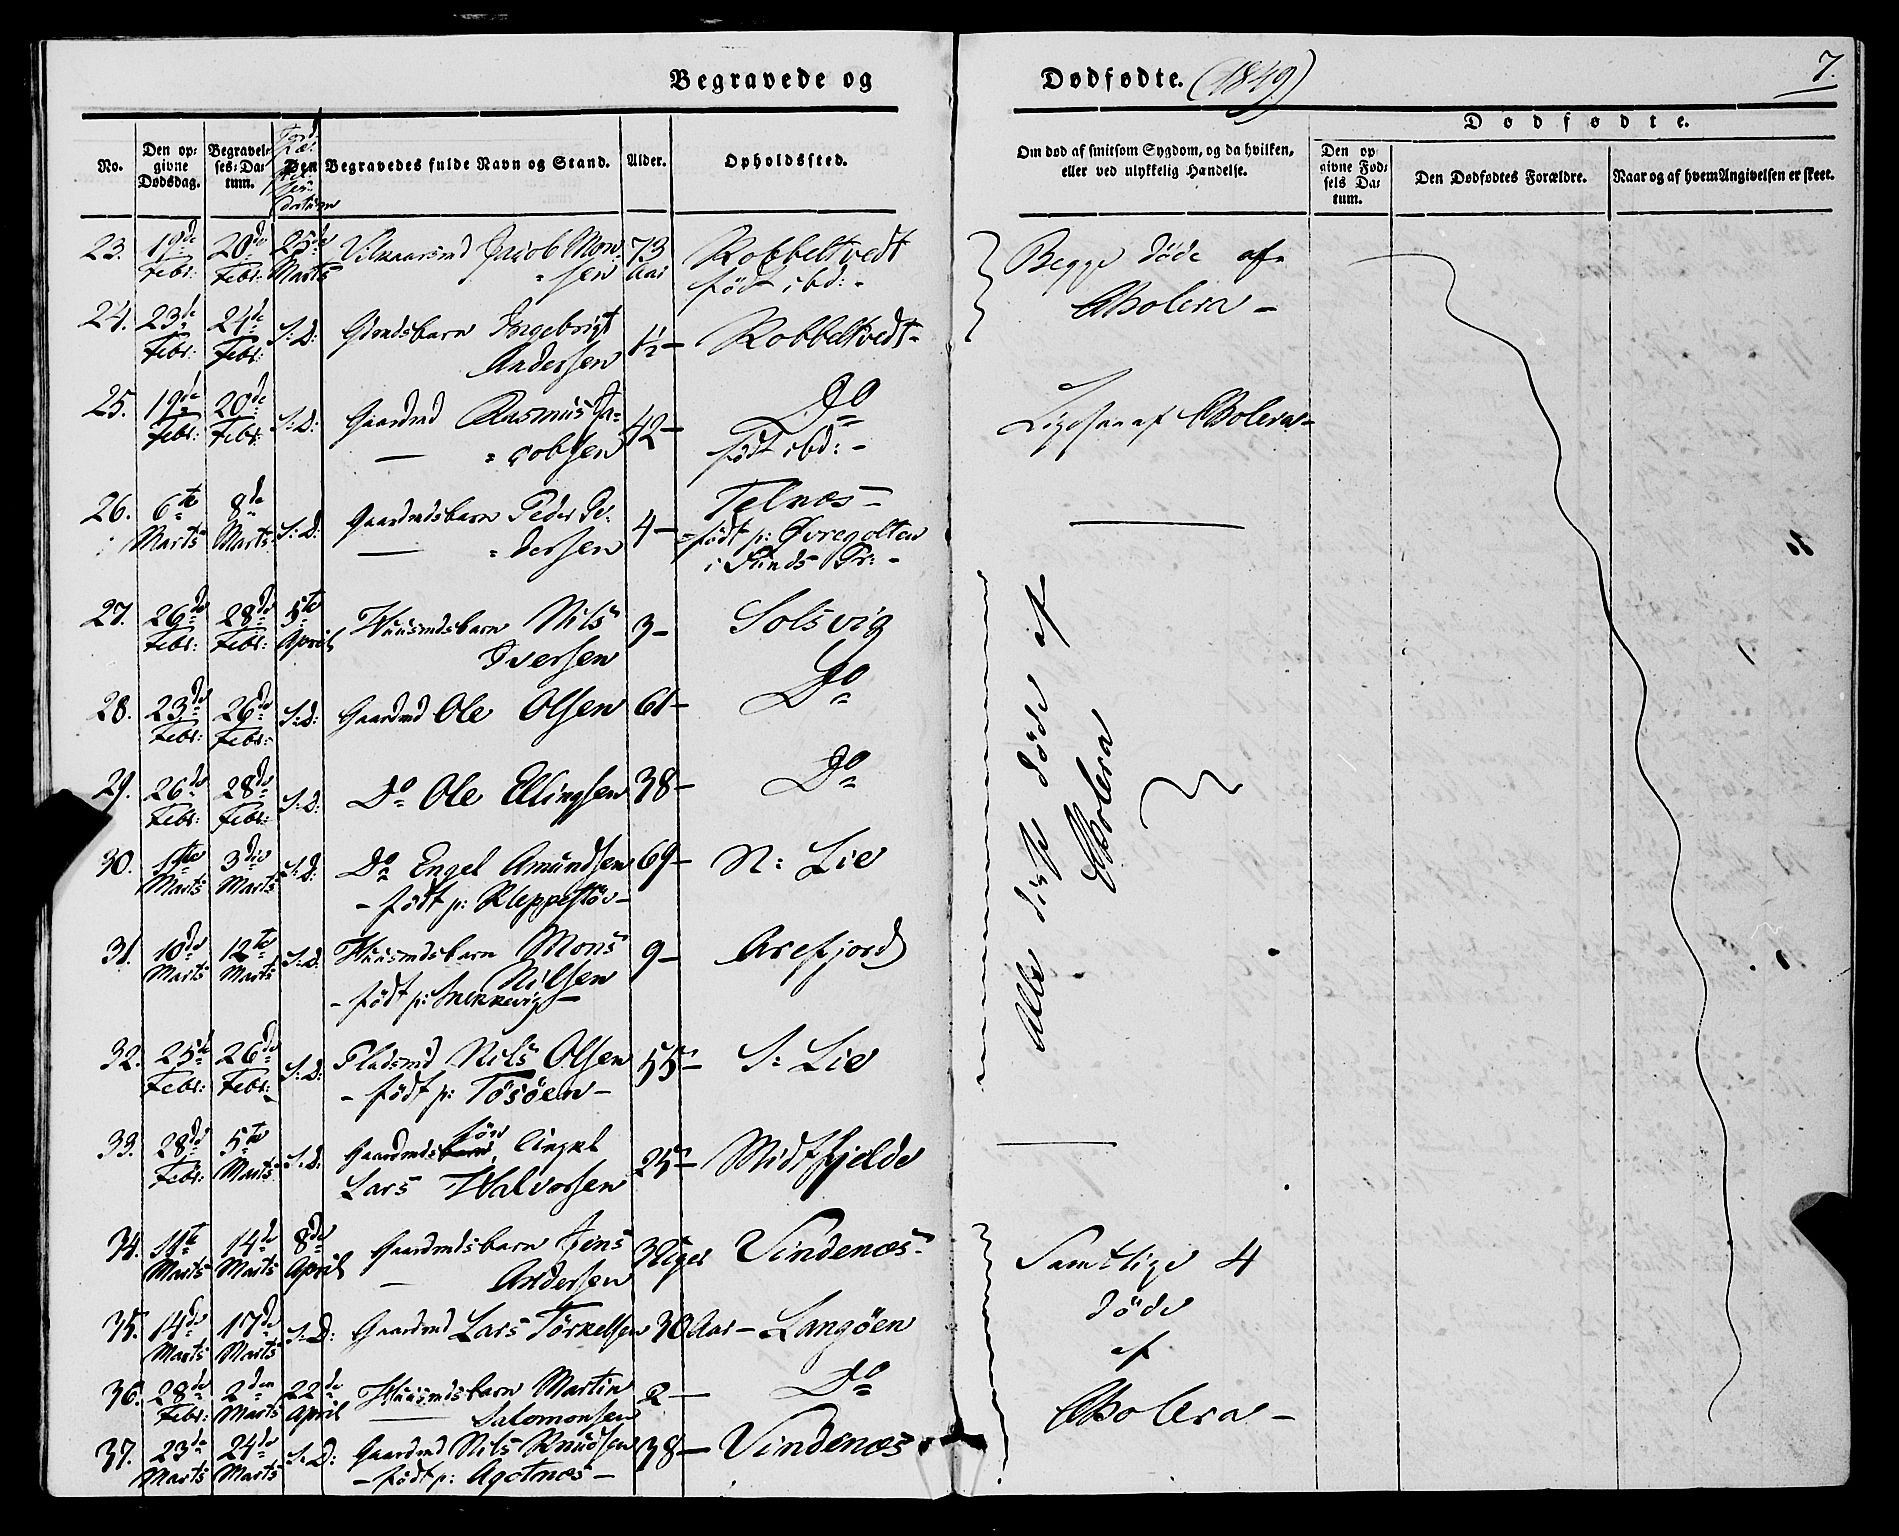 Begravede og Dødfødte. (1849) 7.
No. Den opgivne Dødsdag. Begravelses-Datum. Begravedes fulde Navn og Stand. Alder. Opholdssted. Om død af smitsom Sygdom, og da hvilken, eller ved ulykkelig Hændelse. Dødfødte. Den opgivne Fødsels Datum. Den Dødfødtes Forældre. Naar og af hvem Angivelsen er skeet.
23. 19de Febr: 20de Febr: 25de Marts Vilkaarsmd Jacob Monsen 73 Aar Kobbeltvedt født ibd:- Begge døde af Cholera -
24. 23de Febr: 24de Febr: S:D: Grmdsbarn Ingebrigt Andersen 1½ - Kobbeltvedt -
25. 19de Febr: 20de Febr: S:D: Gaardmd Rasmus Jacobsen 42 - Do født ibd:- Ligesaa af Cholera -
26. 6te Marts 8de Marts S:D: Gaardmdsbarn Peder Pedersen 4 - Telnæs - født p: Øvregolten i Sunds Pr:-
27. 26de Febr: 28de Febr: 5te April Huusmdsbarn Nils Iversen 3 - Solsvig
28. 23de Febr: 26de Febr: S:D: Gaardmd Ole Olsen 61 - Do
29. 26de Febr: 28de Febr: S:D: Do Ole Ellingsen 38 - Do
Alle disse døde af Cholera
30. 1ste Marts 3die Marts S:D: Do Engel Amundsen 69 - N: Lie
- født p: Kleppestøv -
31. 10de Marts 12te Marts S:D: Huusmdsbarn Mons Nilsen 9 - Arefjord
- født p: Snekkevig -
32. 25de Febr: 26de Febr: S:D: Pladsmd Nils Olsen 55 - S: Lie
- født p: Tösöen -
33. 28de Febr: 5te Marts S:D: Gaardmds søn, Ungkl Lars Halvorsen 25 - Midtfjelde
34. 11te Marts 14de Marts 8de April Gaardmdsbarn Jens Andersen 3 Uger Vindenæs - Samtlige 4 døde af Cholera -
35. 14de Marts 17de Marts S:D: Gaardmd Lars Törkelsen 30 Aar - Langöen
36. 28de Febr: 2den Marts 22de April Huusmdsbarn Martin Salomonsen 2 - Do
37. 23de Marts 24de Marts S:D: Gaardmd Nils Knudsen 38 - Vindenæs
- født p: Agotnæs -